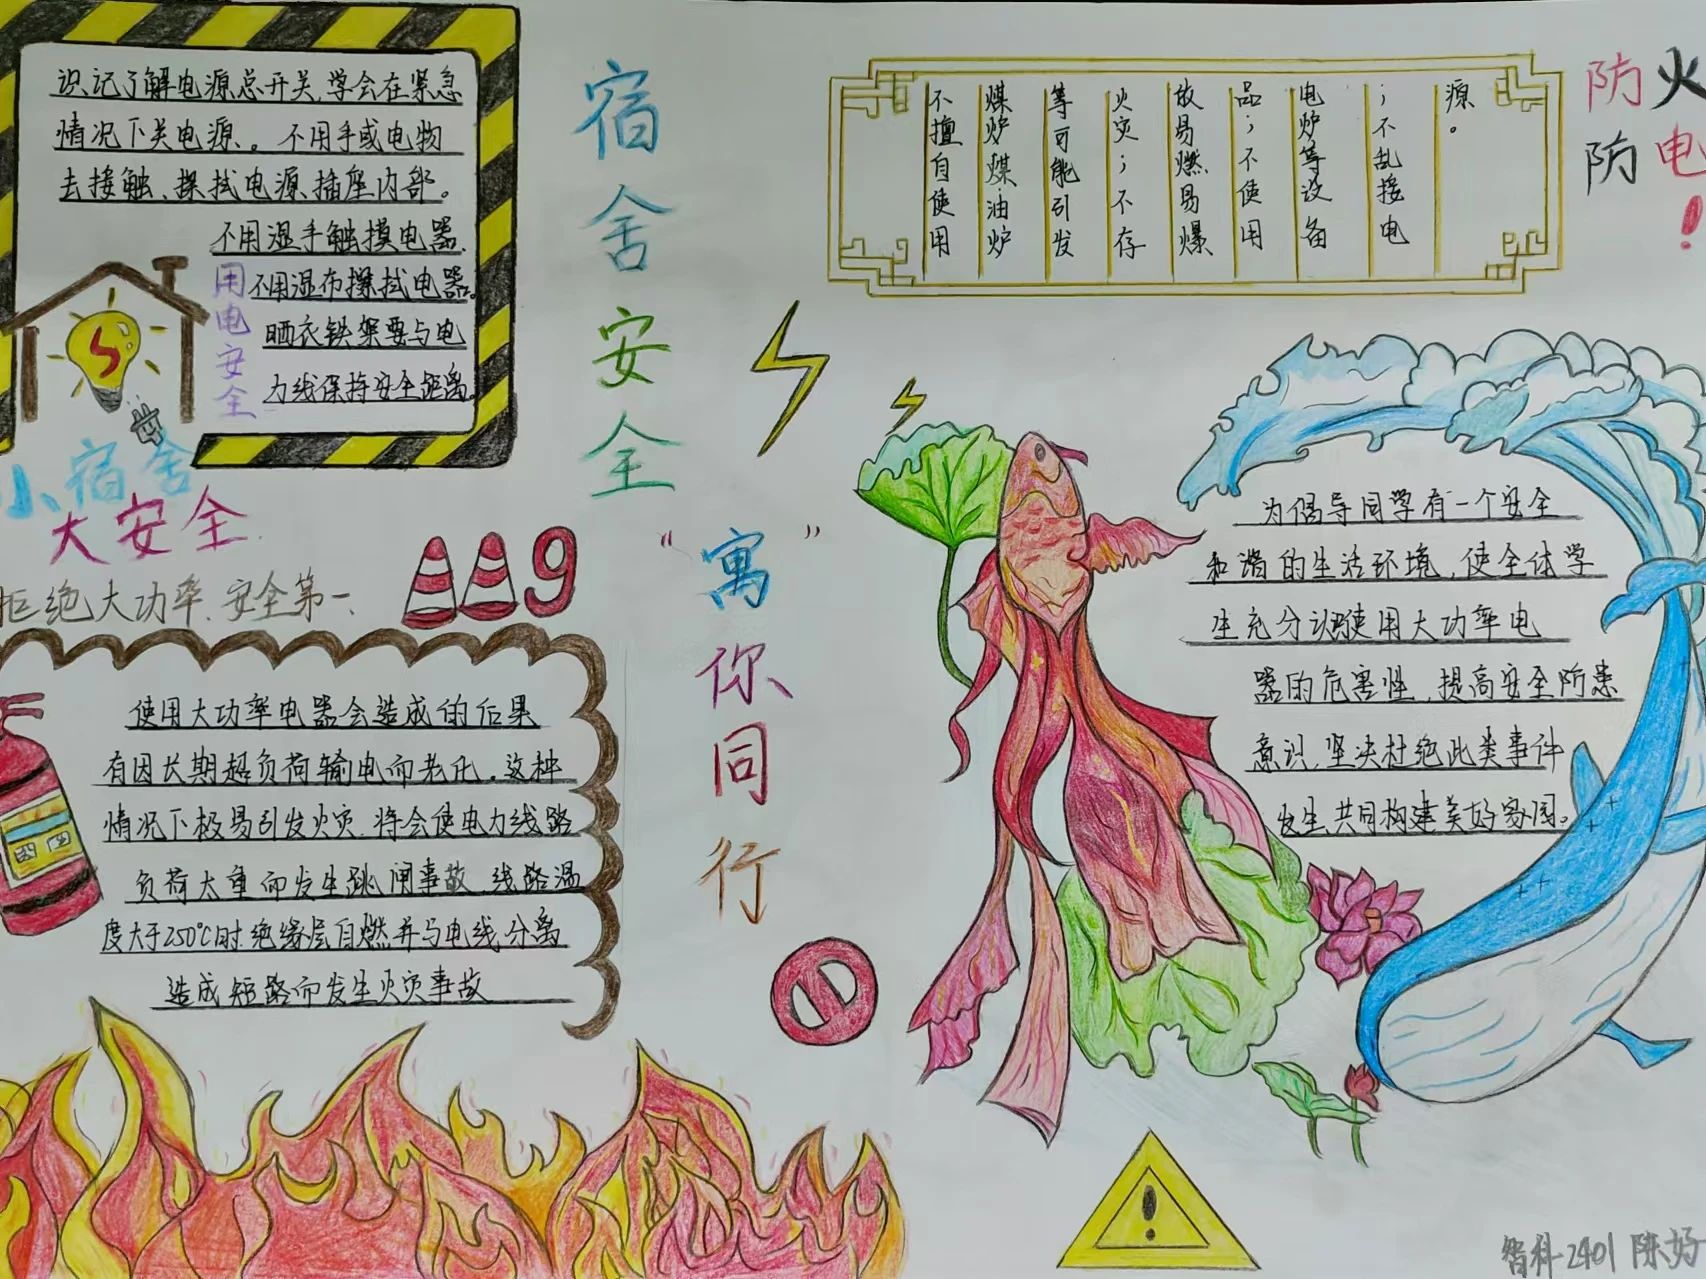 识记了解电源总开关,学会在紧急
情况下关电源、。不用手或电物
去接触、探拭电源插座内部。
不用湿手触摸电器,
不用湿布擦拭电器。
晒衣铁架要与电
力线保持安全距离。
用电安全
小宿舍
大安全
拒绝大功率、安全第一、
119
使用大功率电器会造成的后果
有因长期超负荷输电而老化。这种
情况下极易引发火灾,将会使电力线路
负荷太重而发生跳闸事故,线路温
度大于250℃时,绝缘层自燃并与电线分离
造成短路而发生火灾事故
宿舍安全
“寓你同行”
不擅自使用
煤炉煤油炉
等可能引发
火灾;不存
放易燃易爆
品;不使用
电炉等设备
;不乱接电
源。
防火
防电!
为倡导同学有一个安全
和谐的生活环境,使全体学
生充分认识使用大功率电
器的危害性,提高安全防患
意识,坚决杜绝此类事件
发生共同构建美好家园。
智科2401 陈好